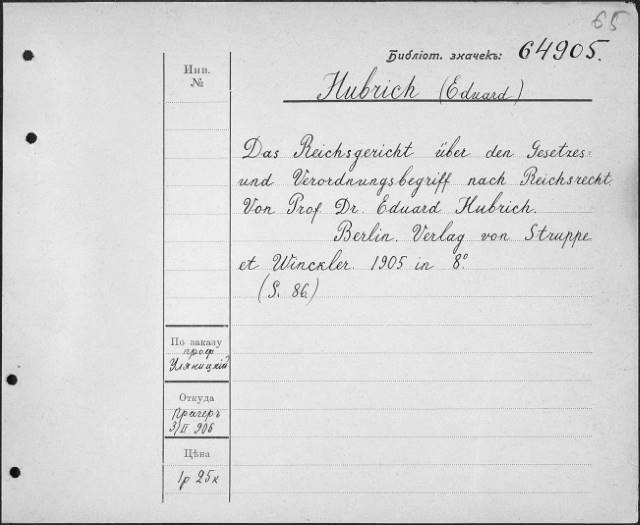 65
Библіот. значекъ: 64905.
Инв.
№
Hubrich (Eduard)
Das Reichsgericht über den Gesetzes=
und Verordnungsbegriff nach Reichsrecht.
Von Prof. Dr. Eduard Hubrich.
Berlin. Verlag von Struppe
et Winckler. 1905 in 8°.
(S. 86)
По заказу
проф
Уляницкій
Откуда
Прагеръ
3/II 906
Цѣна
1р 25к